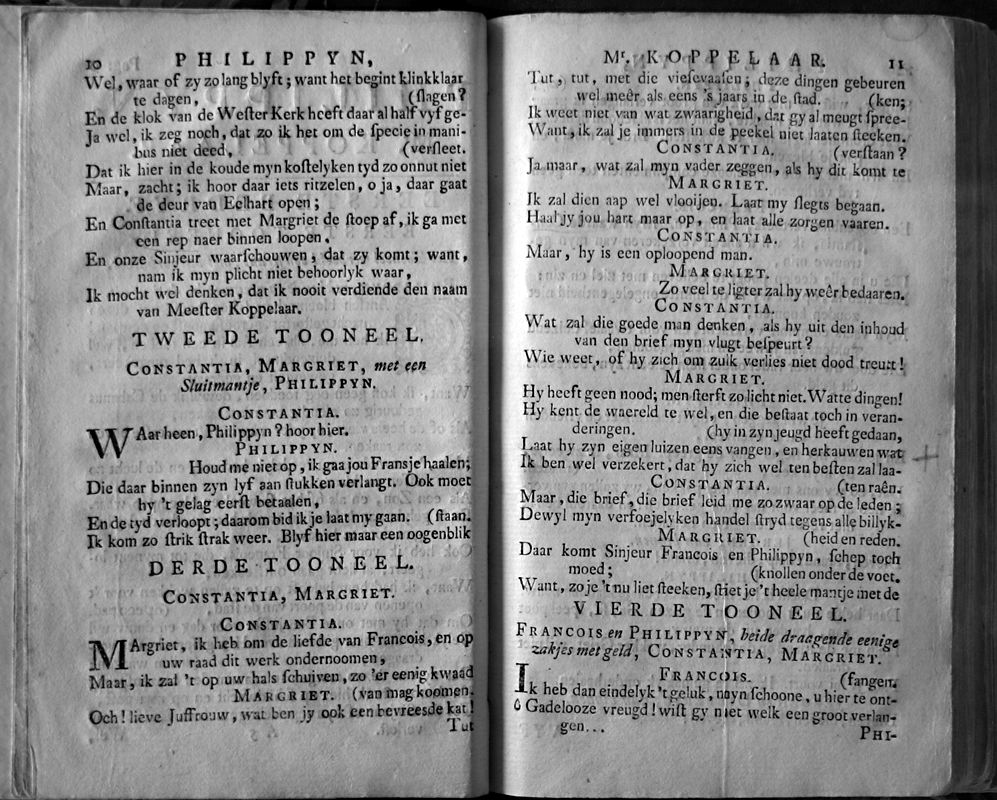 10 PHILIPPYN,
Wel, waar of zy zo lang blyft; want het begint klinkklaar
te dagen, (slagen?
En de klok van de Wester Kerk heeft daar al half vyf ge-
Ja wel, ik zeg noch, dat zo ik het om de specie in mani-
bus niet deed, (versleet.
Dat ik hier in de koude myn kostelyken tyd zo onnut niet
Maar, zacht; ik hoor daar iets ritzelen, o ja, daar gaat
de deur van Eelhart open;
En Constantia treet met Margriet de stoep af, ik ga met
een rep naer binnen loopen,
En onze Sinjeur waarschouwen, dat zy komt; want,
nam ik myn plicht niet behoorlyk waar,
Ik mocht wel denken, dat ik nooit verdiende den naam
van Meester Koppelaar.
TWEEDE TOONEEL.
CONSTANTIA, MARGRIET, met een
Sluitmantje, PHILIPPYN.
CONSTANTIA.
WAar heen, Philippyn? hoor hier.
PHILIPPYN.
Houd me niet op, ik gaa jou Fransje haalen;
Die daar binnen zyn lyf aan stukken verlangt. Ook moet
hy 't gelag eerst betaalen,
En de tyd verloopt; daarom bid ik je laat my gaan. (staan.
Ik kom zo strik strak weer. Blyf hier maar een oogenblik
DERDE TOONEEL.
CONSTANTIA, MARGRIET.
CONSTANTIA.
MArgriet, ik heb om de liefde van Francois, en op
uw raad dit werk ondernoomen,
Maar, ik zal 't op uw hals schuiven, zo 'er eenig kwaad
MARGRIET. (van mag koomen.
Och! lieve Juffrouw, wat ben jy ook een bevreesde kat!
Tut
Mr. KOPPELAAR. 11
Tut, tut, met die viesevaasen; deze dingen gebeuren
wel meêr als eens 's jaars in de stad. (ken;
Ik weet niet van wat zwaarigheid, dat gy al meugt spree-
Want, ik zal je immers in de peekel niet laaten steeken.
CONSTANTIA. (verstaan?
Ja maar, wat zal myn vader zeggen, als hy dit komt te
MARGRIET.
Ik zal dien aap wel vlooijen. Laat my slegts begaan.
Haal jy jou hart maar op, en laat alle zorgen vaaren.
CONSTANTIA.
Maar, hy is een oploopend man.
MARGRIET.
Zo veel te ligter zal hy weêr bedaaren.
CONSTANTIA.
Wat zal die goede man denken, als hy uit den inhoud
van den brief myn vlugt bespeurt?
Wie weet, of hy zich om zulk verlies niet dood treurt!
MARGRIET.
Hy heeft geen nood; men sterft zo licht niet. Watte dingen!
Hy kent de waereld te wel, en die bestaat toch in veran-
deringen. (hy in zyn jeugd heeft gedaan,
Laat hy zyn eigen luizen eens vangen, en herkauwen wat
Ik ben wel verzekert, dat hy zich wel ten besten zal laa-
CONSTANTIA. (ten raên.
Maar, die brief, die brief leid me zo zwaar op de leden;
Dewyl myn verfoejelyken handel stryd tegens alle billyk-
MARGRIET. (heid en reden.
Daar komt Sinjeur Francois en Philippyn, schep toch
moed; (knollen onder de voet.
Want, zo je 't nu liet steeken, stiet je 't heele mantje met de
VIERDE TOONEEL.
FRANCOIS en PHILIPPYN, beide draagende eenige
zakjes met geld, CONSTANTIA, MARGRIET.
FRANCOIS. (fangen.
Ik heb dan eindelyk 't geluk, myn schoone, u hier te ont-
ô Gadelooze vreugd! wist gy niet welk een groot verlan-
gen...
PHI-